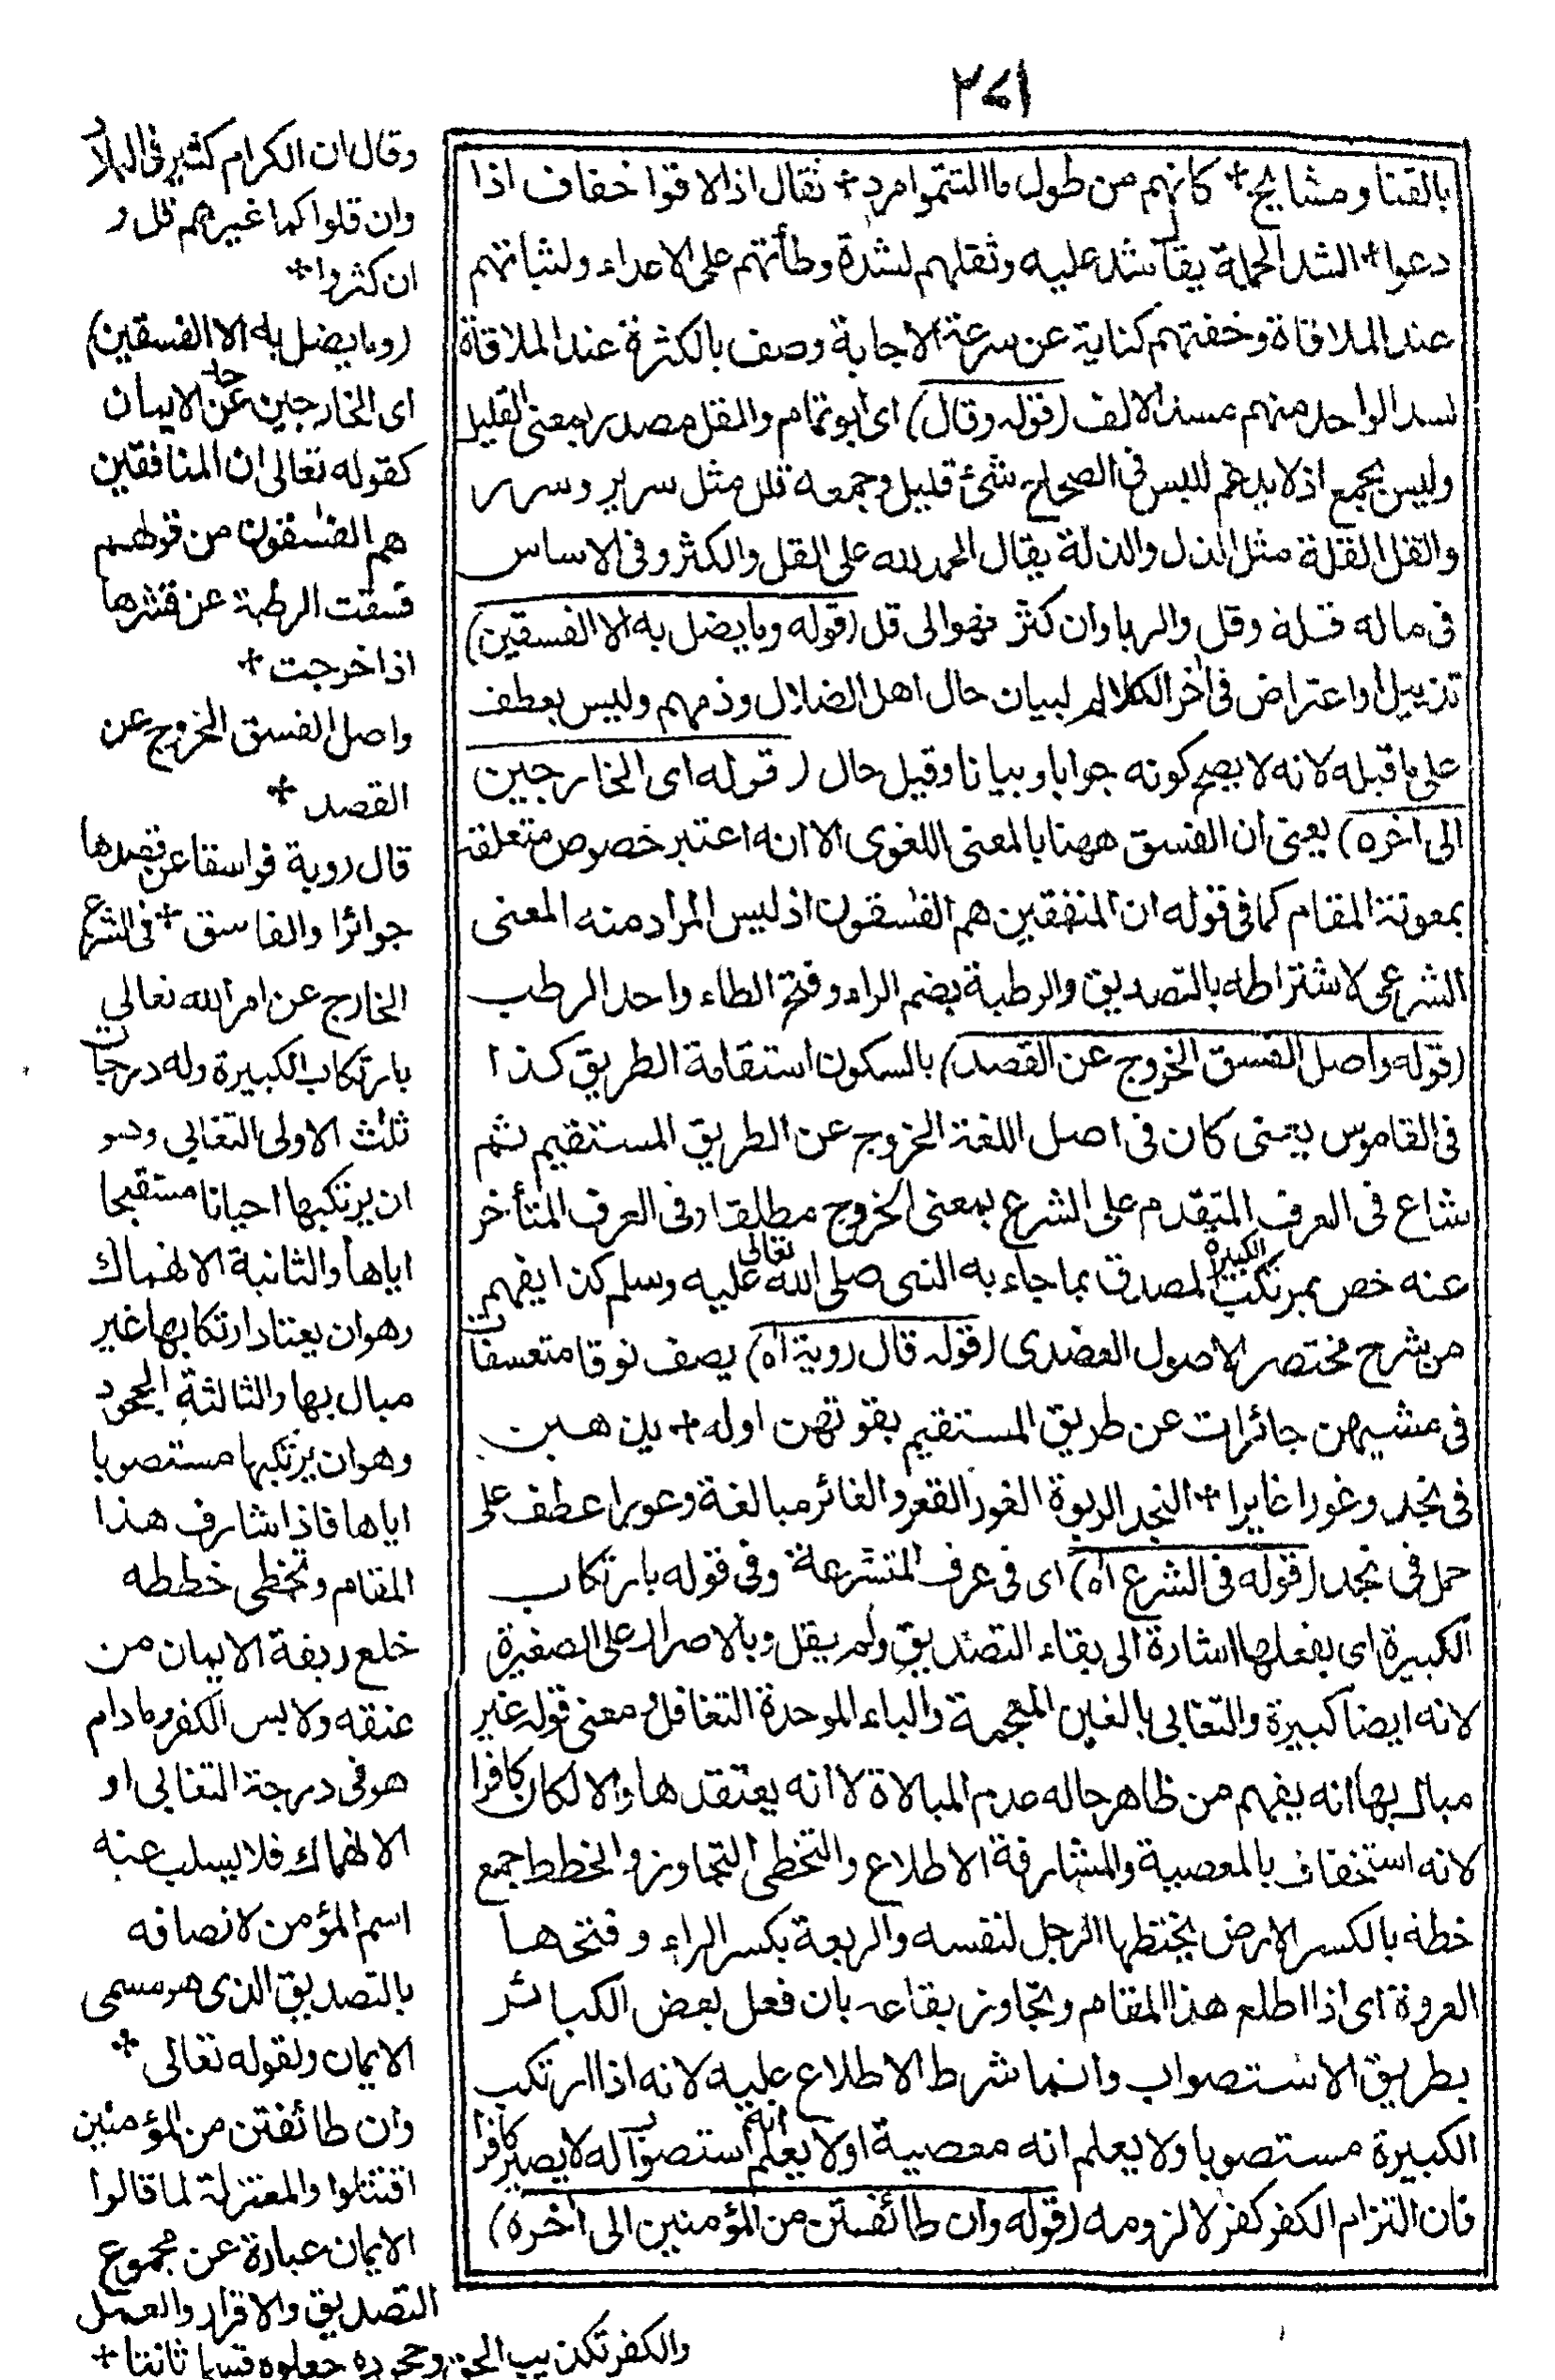 ٢٧١
بالقنا ومشايخ + كانهم من طول ما التثموا مرد + ثقال اذا لاقوا خفاف اذا
دعوا + الشد الحملة يقا شد عليه وثقلهم لشدة وطأتهم على الاعداء ولثباتهم
عند الملاقاة وخفتهم كناية عن سرعة الاجابة وصف بالكثرة عند الملاقاة
لسد الواحد منهم مسد الالف (قوله وقال) اى ابو تمام والقل مصدر بمعنى القليل
وليس بجمع اذ لا يدغم للبس فى الصحاح شئ قليل وجمعه قلل مثل سرير وسرر
والقل القلة مثل الذل والذلة يقال الحمد لله على القل والكثر وفى الاساس
فى ماله قلة وقل والربا وان كثر فهو الى قل (قوله وما يضل به الا الفسقين)
تذييل او اعتراض فى اخر الكلام لبيان حال اهل الضلال وذمهم وليس بعطف
على ما قبله لانه لا يصح كونه جوابا وبيانا وقيل حال (قوله اى الخارجين
الى اخره) يعنى ان الفسق ههنا بالمعنى اللغوى الا انه اعتبر خصوص متعلقه
بمعونة المقام كما فى قوله ان المنفقين هم الفسقون اذ ليس المراد منه المعنى
الشرعى لاشتراطه بالتصديق والرطبة بضم الراء وفتح الطاء واحد الرطب
(قوله واصل الفسق الخروج عن القصد) بالسكون استقامة الطريق كذا
فى القاموس يعنى كان فى اصل اللغة الخروج عن الطريق المستقيم ثم
شاع فى العرف المتقدم على الشرع بمعنى الخروج مطلقا وفى العرف المتأخر
عنه خص بمرتكب الكبيرة المصدق بما جاء به النبى صلى الله تعالى عليه وسلم كذا يفهم
من شرح مختصر الاصول العضدى (قوله قال روبة اه) يصف نوقا متعسفات
فى مشيهن جائرات عن طريق المستقيم بقوتهن اوله + يذهبن
فى نجد وغورا غايرا + النجد الربوة الغور القعر والغائر مبالغة وغورا عطف على
محل فى نجد (قوله فى الشرع اه) اى فى عرف المتشرعة وفى قوله بارتكاب
الكبيرة اى بفعلها اشارة الى بقاء التصديق ولم يقل وبالاصرار على الصغيرة
لانه ايضا كبيرة والتغابى بالغين المعجمة والباء الموحدة التغافل ومعنى قوله غير
مبال بها انه يفهم من ظاهر حاله عدم المبالاة لا انه يعتقدها والا لكان كافرا
لانه استخفاف بالمعصية والمشارفة الاطلاع والتخطى التجاوز والخطط جمع
خطة بالكسر الارض يختطها الرجل لنفسه والربقة بكسر الراء وفتحها
العروة اى اذا اطلع هذا المقام وتجاوز بقاعه بان فعل بعض الكبائر
بطريق الاستصواب وانما شرط الاطلاع عليه لانه اذا ارتكب
الكبيرة مستصوبا ولا يعلم انه معصية او لا يعلم انه استصواب له لا يصير كافرا
فان التزام الكفر كفر لا لزومه (قوله وان طائفتن من المؤمنين الى اخره)
وقال ان الكرام كثير فى البلاد
وان قلوا كما غيرهم قل و
ان كثروا +
(وما يضل به الا الفسقين)
اى الخارجين عن حد الايمان
كقوله تعالى ان المنافقين
هم الفسقون من قولهم
فسقت الرطبة عن قشرها
اذا خرجت +
واصل الفسق الخروج عن
القصد +
قال روبة فواسقا عن قصدها
جوائرا والفاسق + فى الشرع
الخارج عن امر الله تعالى
بارتكاب الكبيرة وله درجات
ثلث الاولى التغابى وهو
ان يرتكبها احيانا مستقبحا
اياها والثانية الانهماك
وهو ان يعتاد ارتكابها غير
مبال بها والثالثة الجحود
وهو ان يرتكبها مستصوبا
اياها فاذا شارف هذا
المقام وتخطى خططه
خلع ربقة الايمان من
عنقه ولابس الكفر وما دام
هو فى درجة التغابى او
الانهماك فلا يسلب عنه
اسم المؤمن لاتصافه
بالتصديق الذى هو مسمى
الايمان ولقوله تعالى +
وان طائفتن من المؤمنين
اقتتلوا والمعتزلة لما قالوا
الايمان عبارة عن مجموع
التصديق والاقرار والعمل
والكفر تكذيب الحق وجحوده جعلوه قسما ثالثا +